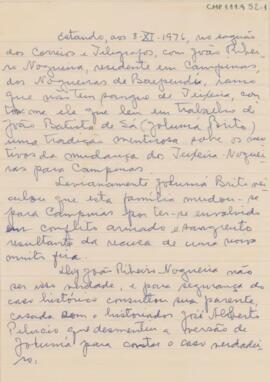 CMP 1.1.1.4 52-1
Estando, aos 3-XI-1976, no saguão
dos Correios e Telégrafos, com João Ribei-
ro Nogueira, residente em Campinas,
dos Nogueiras de Baependi, ramo
que não tem sangue de Teixeira, con-
tou-me ele que leu em trabalho de
João Batista de Sá (Jolumá Brito)
uma tradição mentirosa sobre os mo-
tivos da mudança dos Teixeira Noguei-
ras para Campinas.
Levianamente Jolumá Brito vei-
culou que esta família mudou-se
para Campinas por ter-se envolvido
em conflito armado e sangrento
resultante da recusa de uma noiva
muito fina.
João Ribeiro Nogueira não
ser isso verdade, e para segurança do
caso histórico consultou sua parenta,
casada com o historiador José Alberto
Pelúcio que desmentiu a versão de
Jolumá para contar o caso verdadei-
ro.